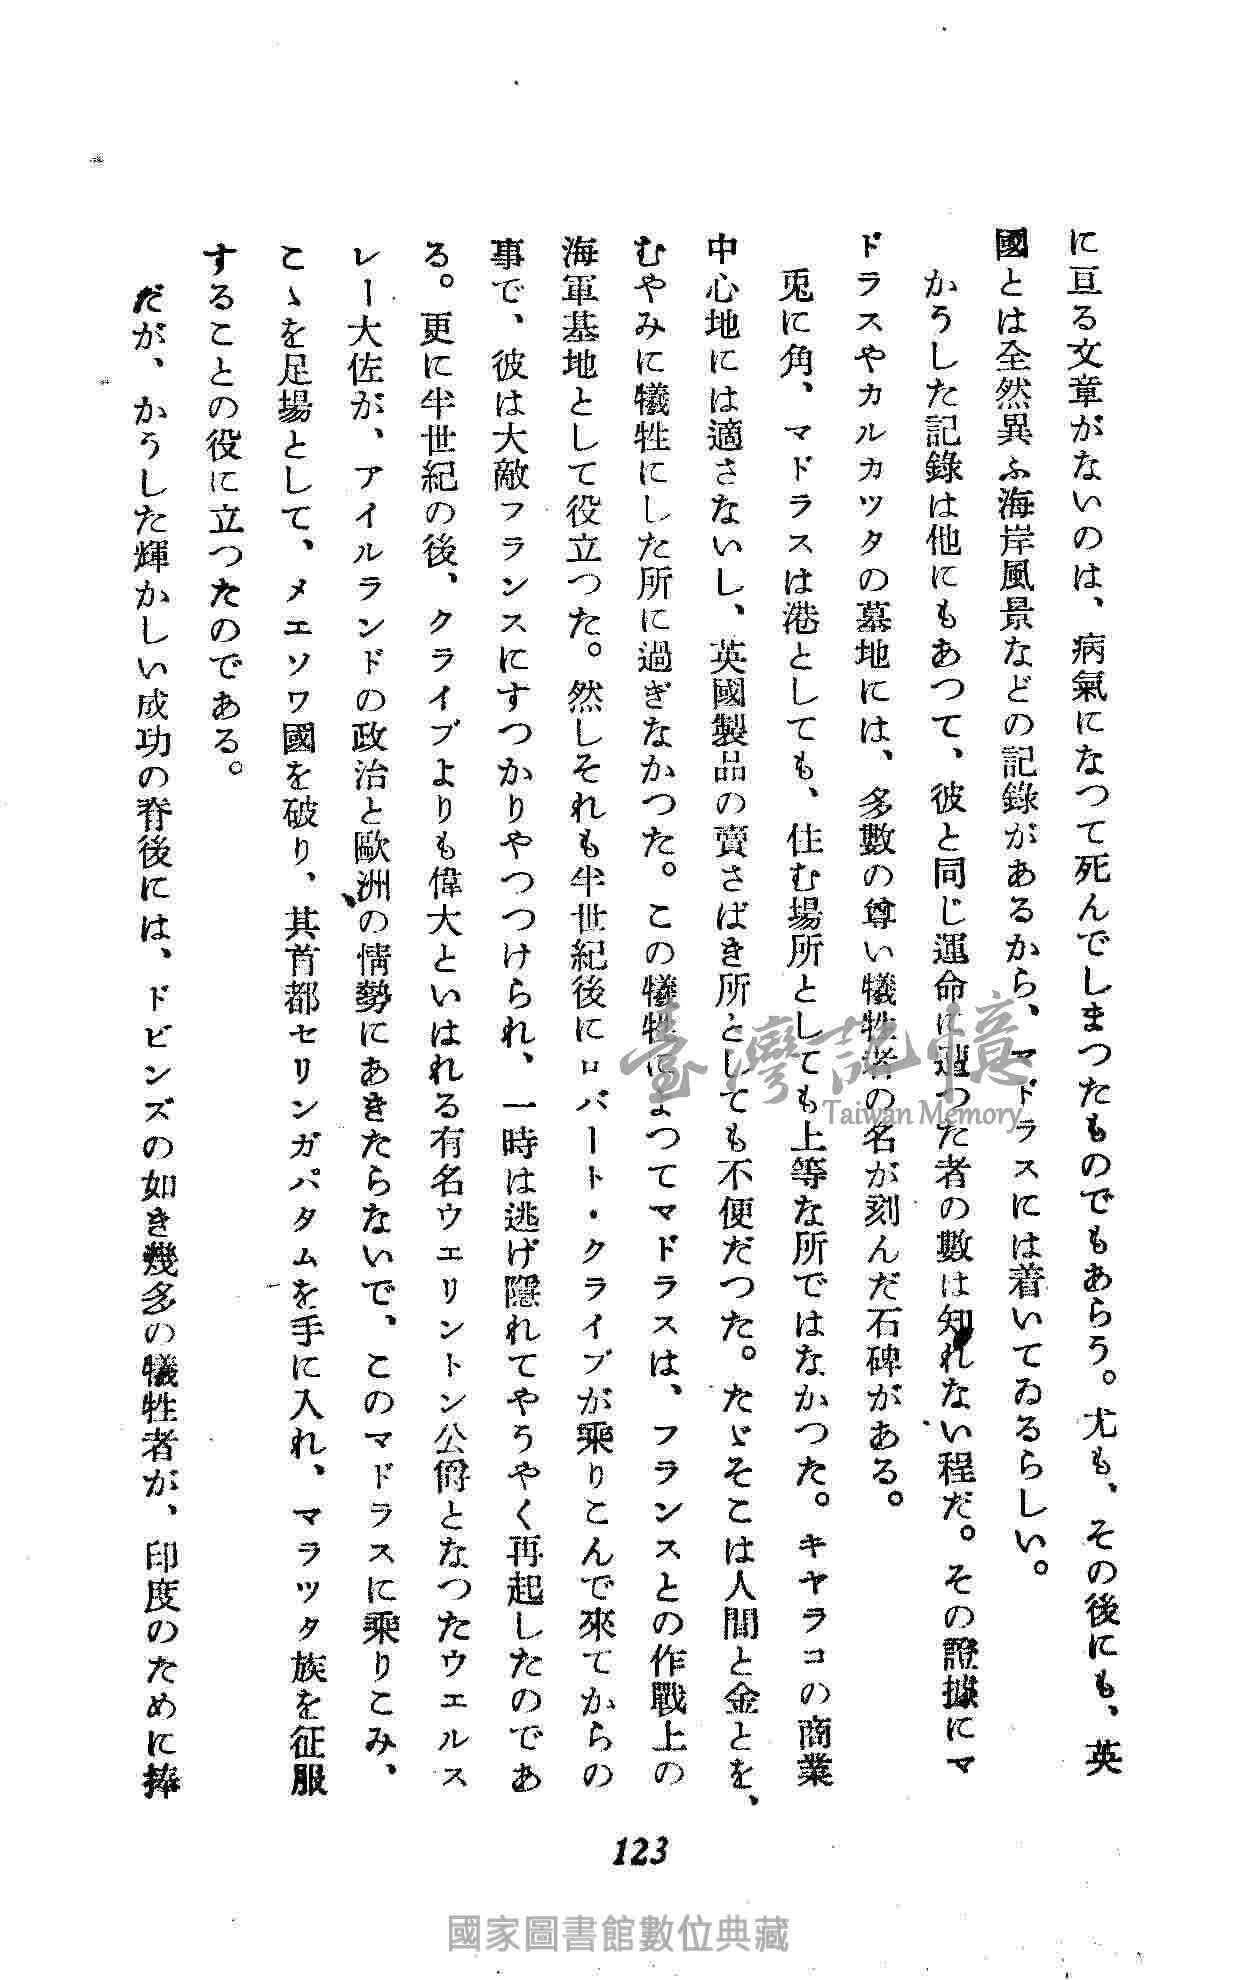 に亘る文章がないのは、病氣になつて死んでしまつたものでもあらう。尤も、その後にも、英
國とは全然異ふ海岸風景などの記錄があるから、マドラスには着いてゐるらしい。
かうした記錄は他にもあつて、彼と同じ運命に遭つた者の數は知れない程だ。その證據にマ
ドラスやカルカツタの墓地には、多數の尊い犧牲者の名が刻んだ石碑がある。
兎に角、マドラスは港としても、住む場所としても上等な所ではなかつた。キヤラコの商業
中心地には適さないし、英國製品の賣さばき所としても不便だつた。たゞそこは人間と金とを、
むやみに犧牲にした所に過ぎなかつた。この犧牲によつてマドラスは、フランスとの作戰上の
海軍基地として役立つた。然しそれも半世紀後にロバート・クライブが乘りこんで來てからの
事で、彼は大敵フランスにすつかりやつつけられ、一時は逃げ隱れてやうやく再起したのであ
る。更に半世紀の後、クライブよりも偉大といはれる有名ウエリントン公爵となつたウエルス
レー大佐が、アイルランドの政治と歐洲の情勢にあきたらないで、このマドラスに乘りこみ、
こゝを足場として、メエソワ國を破り、其首都セリンガパタムを手に入れ、マラツタ族を征服
することの役に立つたのである。
だが、かうした輝かしい成功の脊後には、ドビンズの如き幾多の犧牲者が、印度のために捧
123
臺灣記憶
Taiwan Memory
國家圖書館數位典藏